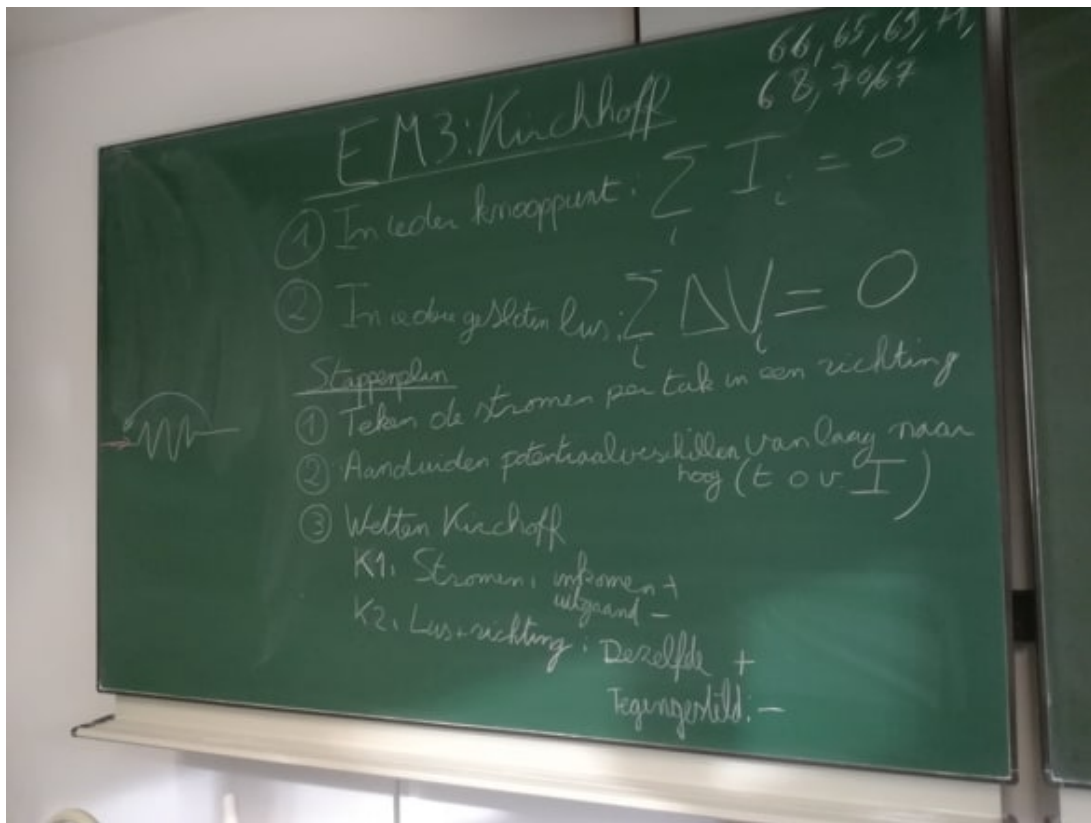 66, 65, 69, 71,
68, 70, 67
EM3: Kirchhoff
① In ieder knooppunt: ∑ I_i = 0
i
② In iedere gesloten lus: ∑ ΔV_i = 0
i
Stappenplan
① Teken de stromen per tak in een richting
② Aanduiden potentiaalverschillen van laag naar
hoog (t o v I)
③ Wetten Kirchoff
K1: Stromen: inkomen +
uitgaand -
K2: Lus + richting: Dezelfde +
Tegengesteld: -